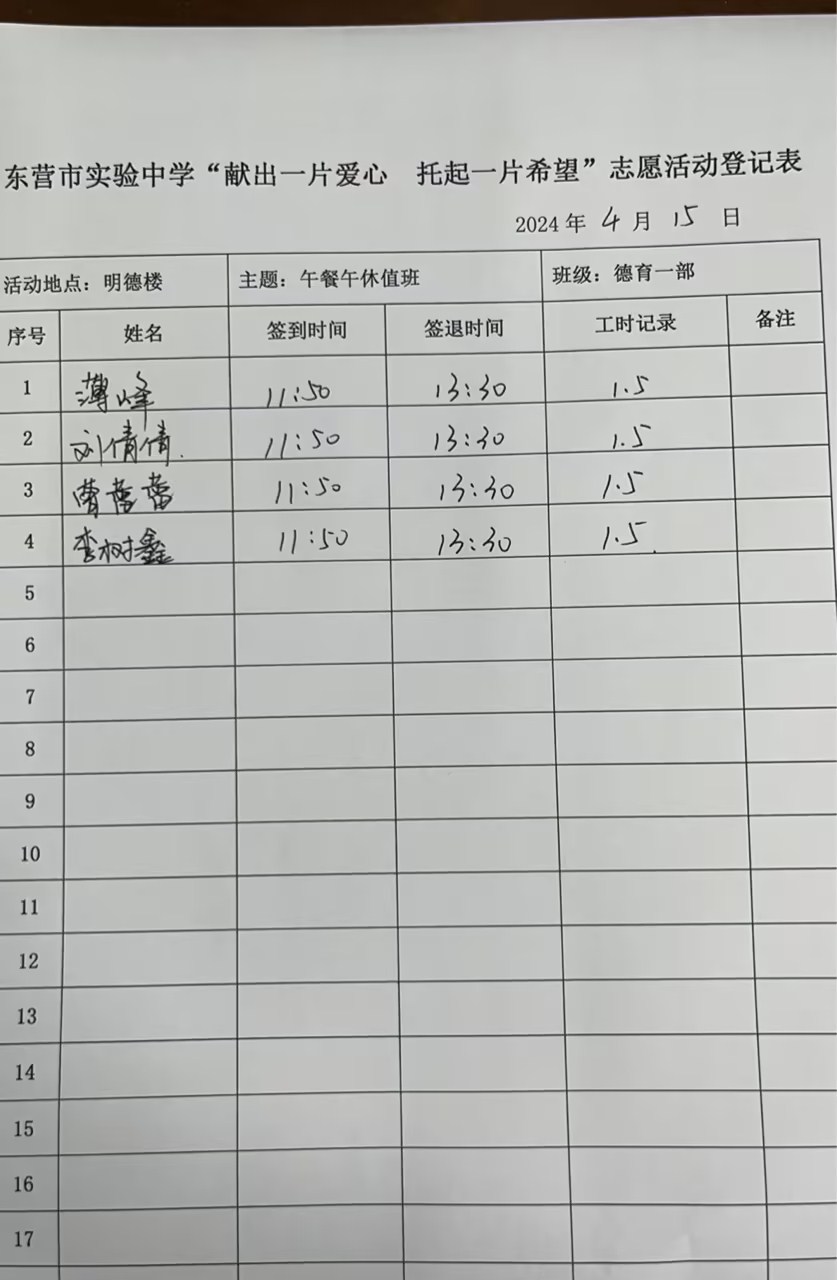 东营市实验中学“献出一片爱心 托起一片希望”志愿活动登记表
2024 年 4 月 15 日
活动地点：明德楼 主题：午餐午休值班 班级：德育一部
序号 姓名 签到时间 签退时间 工时记录 备注
1 薄峰 11:50 13:30 1.5
2 刘倩倩 11:50 13:30 1.5
3 11:50 13:30 1.5
4 李树鑫 11:50 13:30 1.5
5
6
7
8
9
10
11
12
13
14
15
16
17